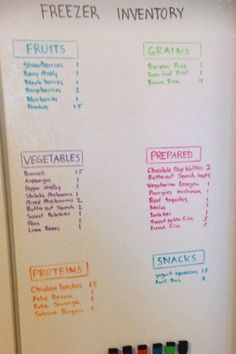 FREEZER INVENTORY
FRUITS
Strawberries 1
Berry Medly 1
Blackberries 1
Raspberries 2
Blueberries 1
Peaches 1.5
GRAINS
Brown Rice 4
VEGETABLES
Broccoli 1.5
Asparagus 1
Pepper medly 1
Shitake Mushrooms 1
Mixed Mushrooms 2
Butternut Squash 2
Sweet Potatoes 1
Peas 1
Lima Beans 1
PREPARED
Chocolate Chip Waffles 2
Butternut Squash 1
Vegetarian Lasagna 1
Mushroom 1
Beef taquitos 1
1
1
Sweet potato fries .5
fries .5
PROTEINS
Chicken tenders 1.5
Fake Bacon 1
Fake Sausage 1
Salmon Burgers 1
SNACKS
yogurt squeezies 1.5
Fruit Bars 3